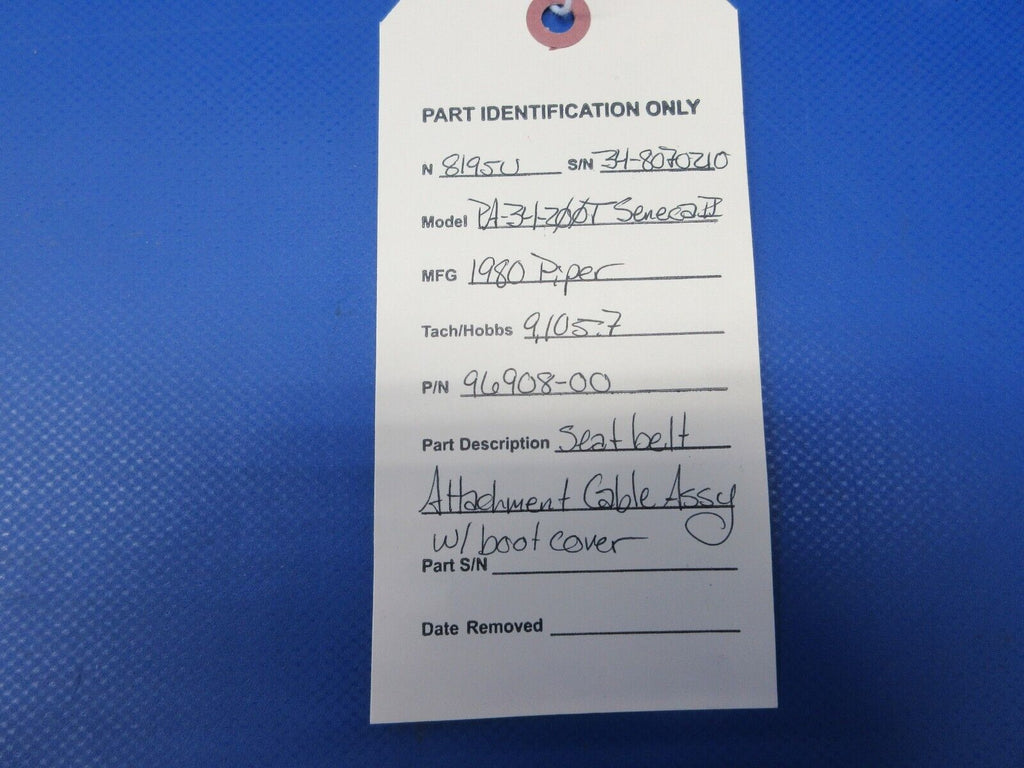 PART IDENTIFICATION ONLY
N 8195U S/N 34-8070210
Model PA-34-200T Seneca II
MFG 1980 Piper
Tach/Hobbs 9,105.7
P/N 96908-00
Part Description Seat belt
Attachment Cable Assy
w/ boot cover
Part S/N
Date Removed